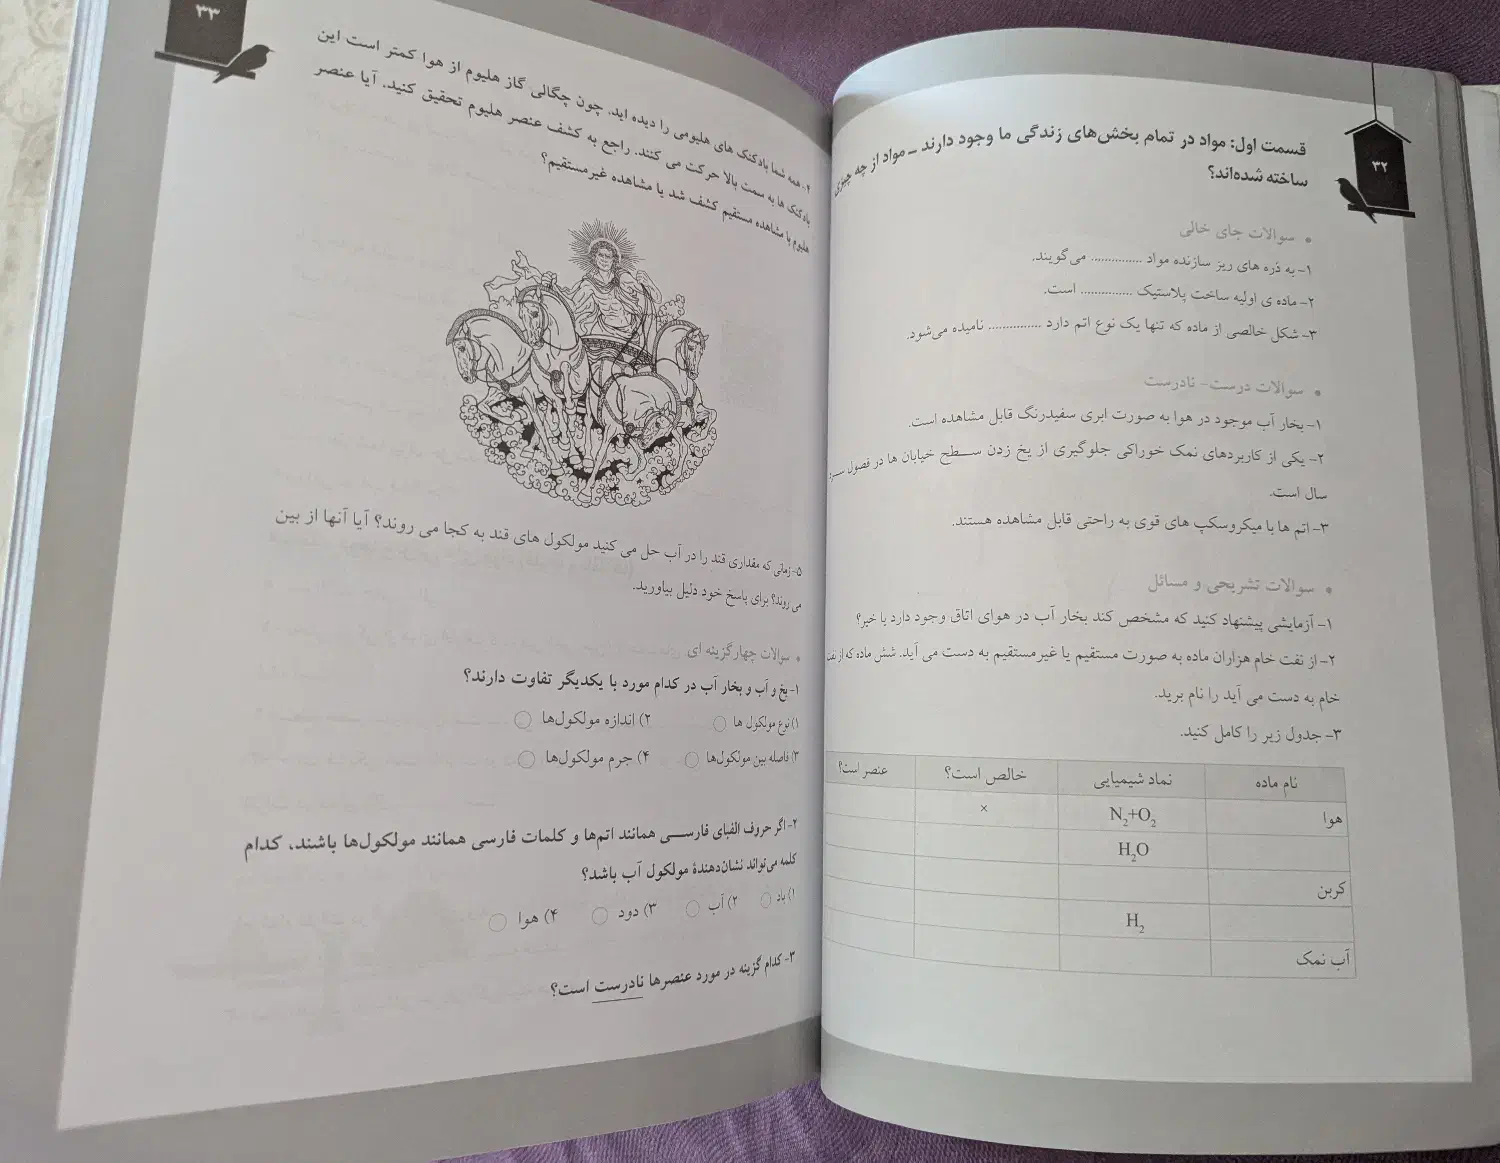 ۳۲
قسمت اول: مواد در تمام بخش‌های زندگی ما وجود دارند – مواد از چه چیزی
ساخته شده‌اند؟
• سوالات جای خالی
۱- به ذره های ریز سازنده مواد ............... می‌گویند.
۲- ماده ی اولیه ساخت پلاستیک ............... است.
۳- شکل خالصی از ماده که تنها یک نوع اتم دارد ............... نامیده می‌شود.
• سوالات درست- نادرست
۱- بخار آب موجود در هوا به صورت ابری سفیدرنگ قابل مشاهده است.
۲- یکی از کاربردهای نمک خوراکی جلوگیری از یخ زدن سطح خیابان ها در فصول
سال است.
۳- اتم ها با میکروسکپ های قوی به راحتی قابل مشاهده هستند.
• سوالات تشریحی و مسائل
۱- آزمایشی پیشنهاد کنید که مشخص کند بخار آب در هوای اتاق وجود دارد یا خیر؟
۲- از نفت خام هزاران ماده به صورت مستقیم یا غیرمستقیم به دست می آید. شش ماده که از نفت
خام به دست می آید را نام برید.
۳- جدول زیر را کامل کنید.
نام ماده نماد شیمیایی خالص است؟ عنصر است؟
هوا N₂+O₂ ×
H₂O
کربن
H₂
آب نمک
۳۳
۴- همه شما بادکنک های هلیومی را دیده اید. چون چگالی گاز هلیوم از هوا کمتر است این
بادکنک ها به سمت بالا حرکت می کنند. راجع به کشف عنصر هلیوم تحقیق کنید. آیا عنصر
هلیوم با مشاهده مستقیم کشف شد یا مشاهده غیرمستقیم؟
۵- زمانی که مقداری قند را در آب حل می کنید مولکول های قند به کجا می روند؟ آیا آنها از بین
می روند؟ برای پاسخ خود دلیل بیاورید.
• سوالات چهارگزینه ای
۱- یخ و آب و بخار آب در کدام مورد با یکدیگر تفاوت دارند؟
۱) نوع مولکول ها ۲) اندازه مولکول‌ها
۳) فاصله بین مولکول‌ها ۴) جرم مولکول‌ها
۲- اگر حروف الفبای فارسی همانند اتم‌ها و کلمات فارسی همانند مولکول‌ها باشند، کدام
کلمه می‌تواند نشان‌دهندهٔ مولکول آب باشد؟
۱) باد ۲) آب ۳) دود ۴) هوا
۳- کدام گزینه در مورد عنصرها نادرست است؟